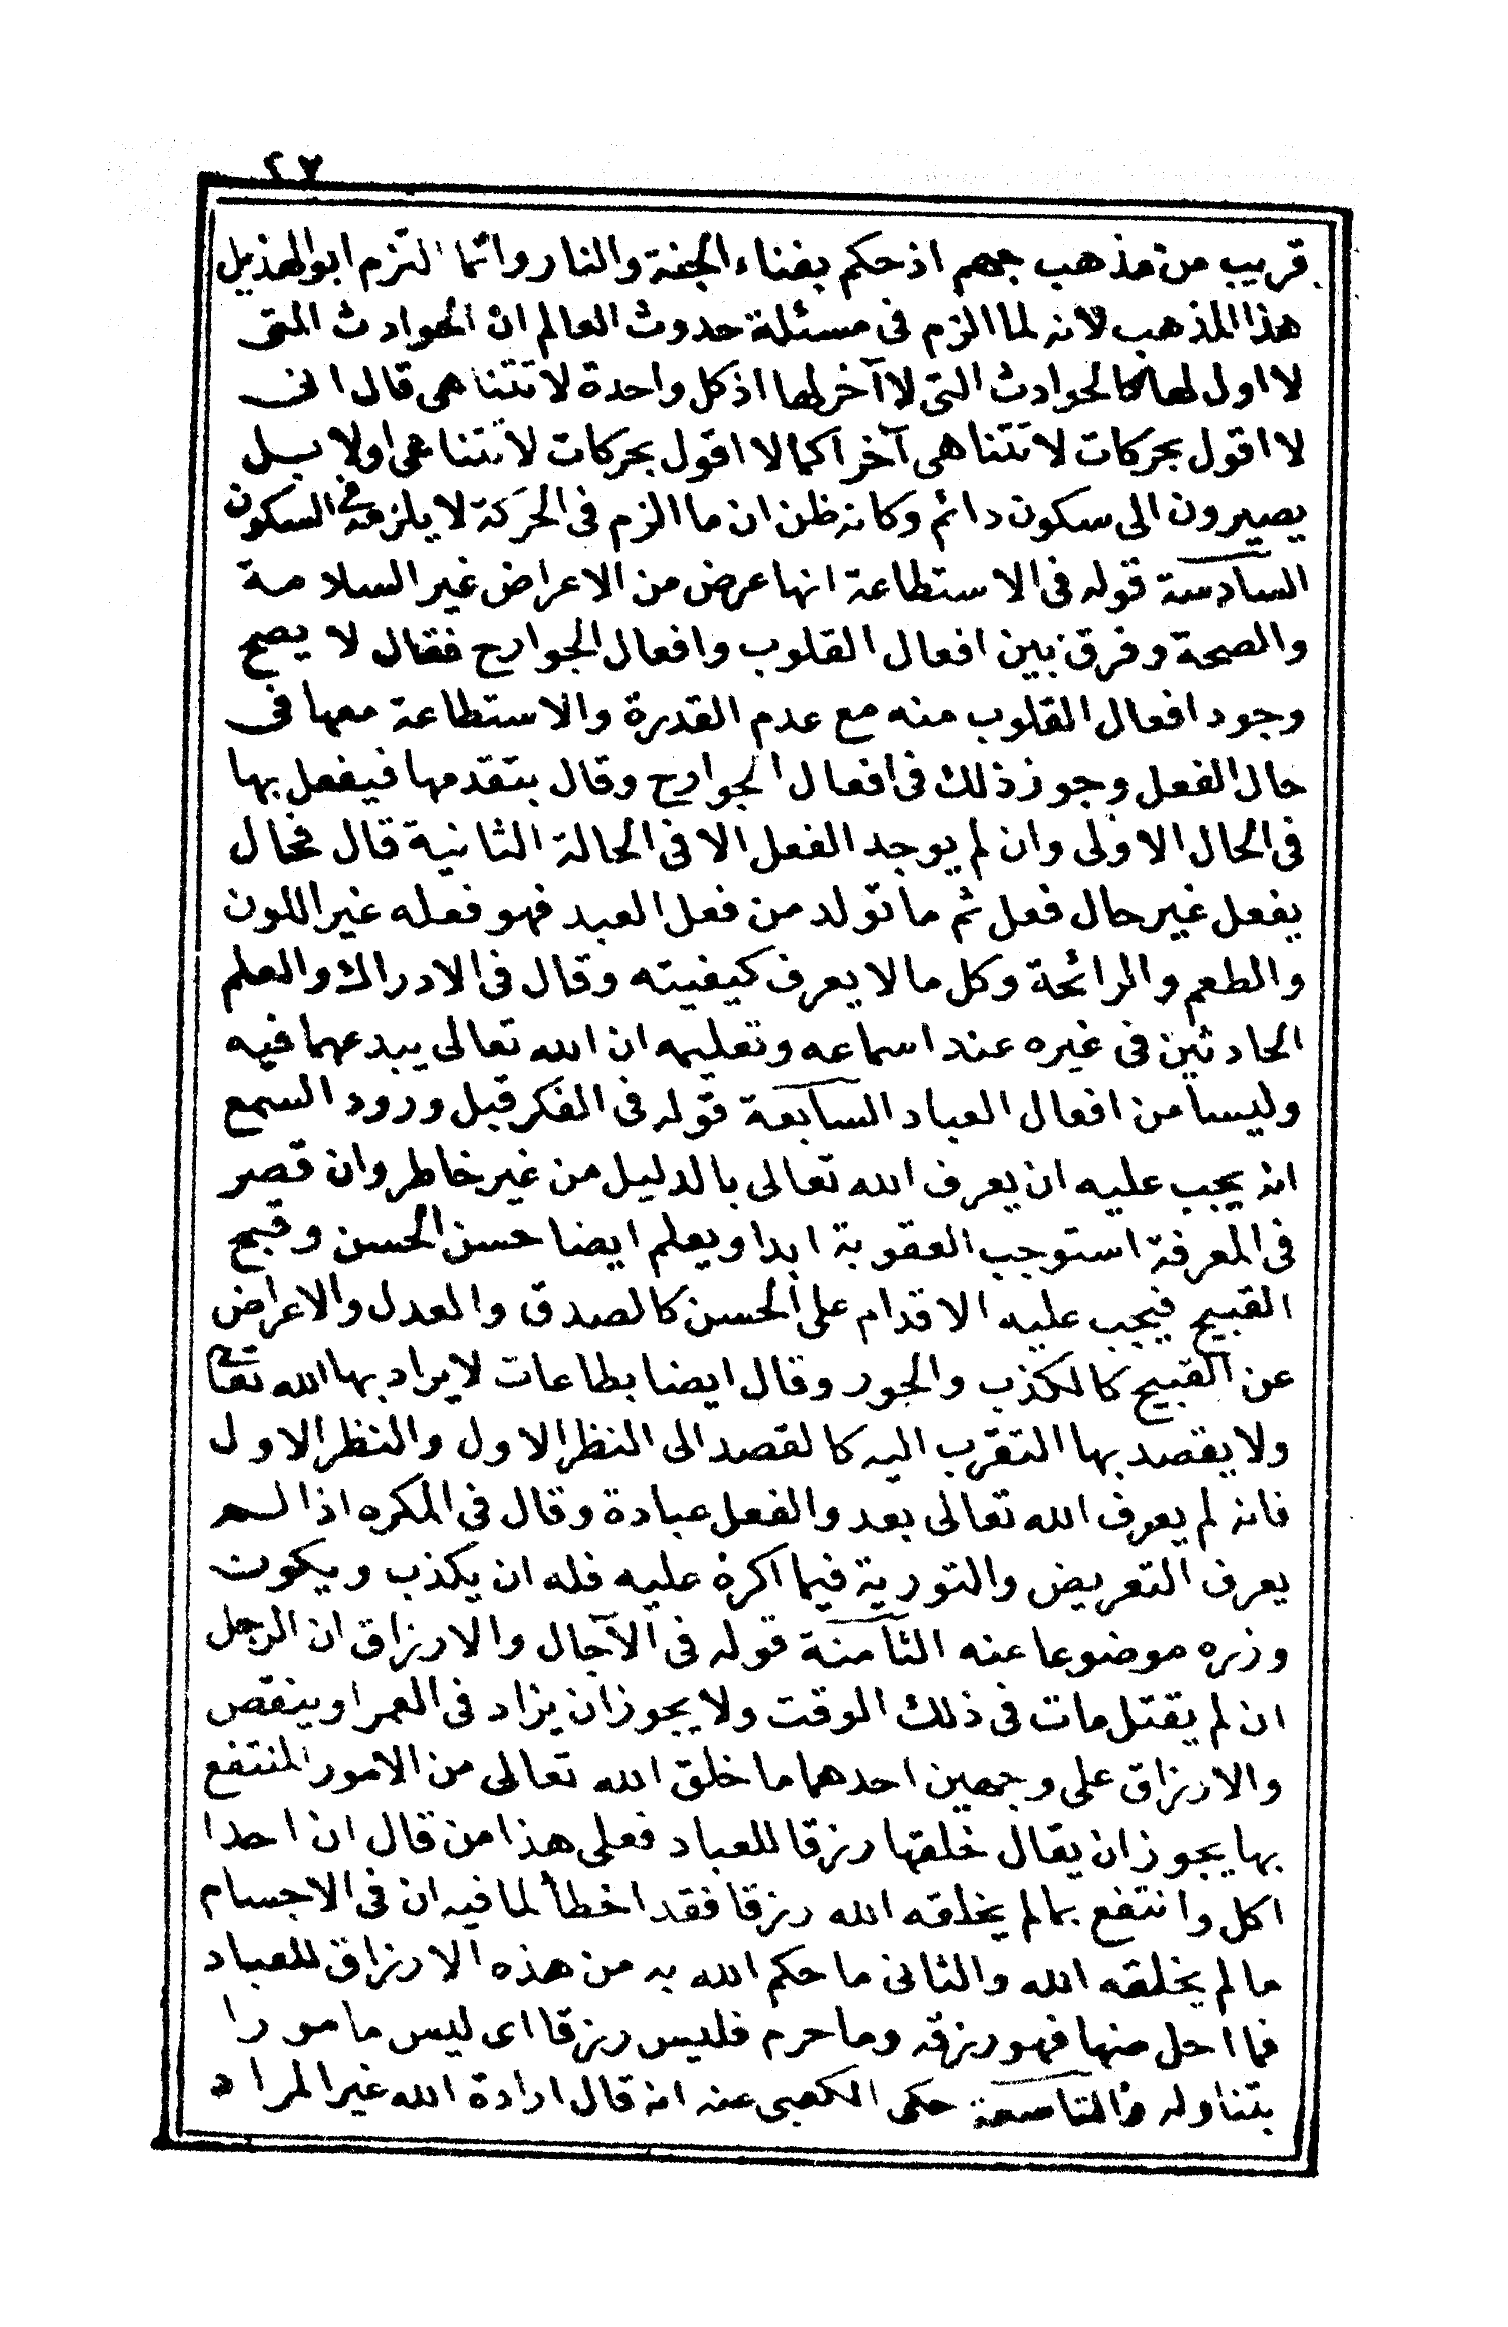 ٢٧
قريب من مذهب جهم اذ حكم بفناء الجنة والنار وانما التزم ابو الهذيل
هذا المذهب لانه لما الزم فى مسئلة حدوث العالم ان الحوادث التى
لا اول لها كالحوادث التى لا آخر لها اذ كل واحدة لا تتناهى قال انى
لا اقول بحركات لا تتناهى آخرا كما لا اقول بحركات لا تتناهى اولا بل
يصيرون الى سكون دائم وكانه ظن ان ما الزم فى الحركة لا يلزمه فى السكون
السادسة قوله فى الاستطاعة انها عرض من الاعراض غير السلامة
والصحة وفرق بين افعال القلوب وافعال الجوارح فقال لا يصح
وجود افعال القلوب منه مع عدم القدرة والاستطاعة معها فى
حال الفعل وجوز ذلك فى افعال الجوارح وقال بتقدمها فيفعل بها
فى الحال الاولى وان لم يوجد الفعل الا فى الحالة الثانية قال فحال
يفعل غير حال فعل ثم ما تولد من فعل العبد فهو فعله غير اللون
والطعم والرائحة وكل ما لا يعرف كيفيته وقال فى الادراك والعلم
الحادثين فى غيره عند اسماعه وتعليمه ان الله تعالى يبدعهما فيه
وليسا من افعال العباد السابعة قوله فى الفكر قبل ورود السمع
انه يجب عليه ان يعرف الله تعالى بالدليل من غير خاطر وان قصر
فى المعرفة استوجب العقوبة ابدا ويعلم ايضا حسن الحسن وقبح
القبيح فيجب عليه الاقدام على الحسن كالصدق والعدل والاعراض
عن القبيح كالكذب والجور وقال ايضا بطاعات لا يراد بها الله تعا
ولا يقصد بها التقرب اليه كالقصد الى النظر الاول والنظر الاول
فانه لم يعرف الله تعالى بعد والفعل عبادة وقال فى المكره اذا لم
يعرف التعريض والتورية فيما اكره عليه فله ان يكذب ويكون
وزره موضوعا عنه الثامنة قوله فى الآجال والارزاق ان الرجل
ان لم يقتل مات فى ذلك الوقت ولا يجوز ان يزاد فى العمر او ينقص
والارزاق على وجهين احدهما ما خلق الله تعالى من الامور المنتفع
بها يجوز ان يقال خلقها رزقا للعباد فعلى هذا من قال ان احدا
اكل وانتفع بما لم يخلقه الله رزقا فقد اخطأ لما فيه ان فى الاجسام
ما لم يخلقه الله والثانى ما حكم الله به من هذه الارزاق للعباد
فما احل منها فهو رزقه وما حرم فليس رزقا اى ليس مامورا
بتناوله والتاسعة حكى الكعبى عنه انه قال ارادة الله غير المراد